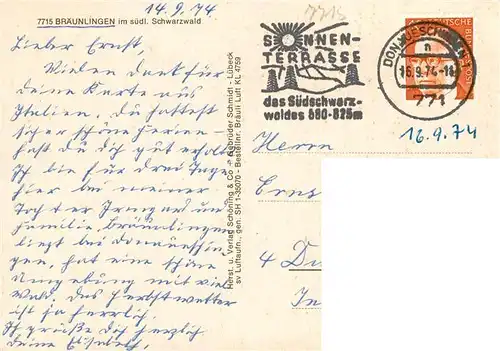 14.9.74
7715 BRÄUNLINGEN im südl. Schwarzwald
Lieber Ernst,
Vielen Dank für
deine Karte aus
Italien, du hattest
sicher schöne Ferien -
hast du dich gut erholt
Ich bin für drei Tage
hier bei meiner
Tochter Irmgard und
Familie, Bräunlingen
liegt bei Donaueschin,
hat eine schöne
Umgebung mit viel
Wald. Das Herbstwetter
ist ja herrlich.
Ich grüße dich herzlich
deine Elisabeth,
Herst. u. Verlag Schöning & Co + Gebrüder Schmidt - Lübeck
sv Luftaufn., gen. SH 1-35070 - Bestellnr. Bräunl Luft KL 4759
7715
SONNEN-
TERRASSE
des Südschwarz-
waldes 680-825m
DONAUESCHINGEN
n
16.9.74-18
771
DEUTSCHE
BUNDESPOST
16.9.74
Herrn
Erns
4 Dü
In